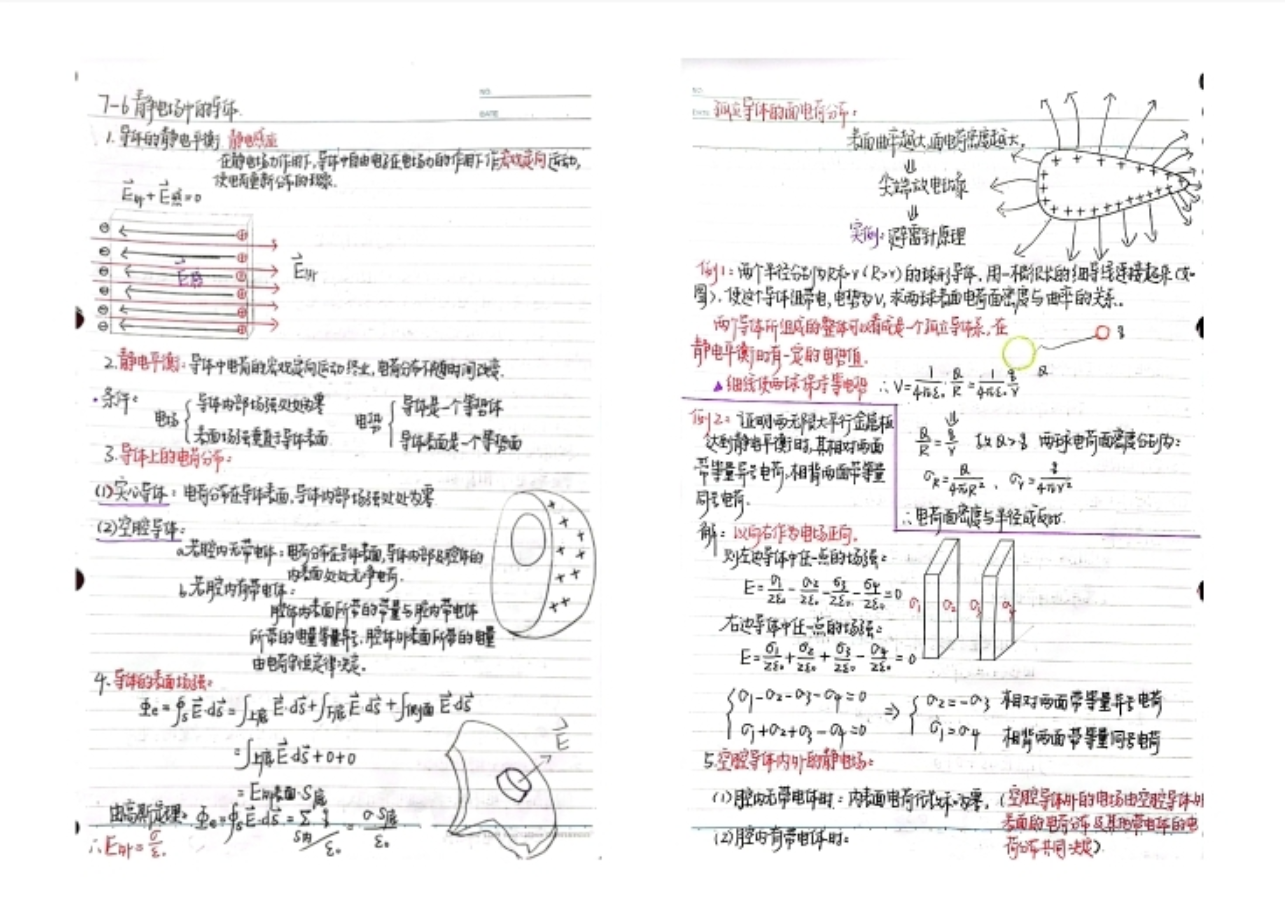 NO.
DATE
7-6 静电场中的导体.
1. 导体的静电平衡 静电感应
在静电场力作用下,导体中自由电子在电场力的作用下作宏观定向运动,
使电荷重新分布的现象.
E外+E感=0
E感
E外
2. 静电平衡: 导体中电荷的宏观定向运动终止,电荷分布不随时间改变.
条件: 电场 { 导体内部场强处处为零 电势 { 导体是一个等势体
表面场强垂直于导体表面 导体表面是一个等势面
3. 导体上的电荷分布:
(1)实心导体: 电荷分布在导体表面,导体内部场强处处为零
(2)空腔导体:
a.若腔内无带电体: 电荷分布在导体表面,导体内部及腔体的
内表面处处无净电荷.
b.若腔内有带电体:
腔体内表面所带的带量与腔内带电体
所带的电量等量异号,腔体外表面所带的电量
由电荷守恒定律决定.
4. 导体的表面场强:
Φe=∮s E·ds=∫上底 E·ds+∫下底 E·ds+∫侧面 E·ds
=∫上底 E·ds+0+0
=E外表面·S底
E
由高斯定理: Φe=∮s E·ds=Σ S内 q/ε₀=σS底/ε₀
∴E外=σ/ε₀
NO.
DATE
孤立导体的面电荷分布:
表面曲率越大,面电荷密度越大.
⇓
尖端放电现象
⇓
实例: 避雷针原理
例1: 两个半径分别为R和r(R>r)的球形导体,用一根很长的细导线连接起来(如
图),使这个导体组带电,电势为V,求两球表面电荷面密度与曲率的关系.
两个导体所组成的整体可以看成是一个孤立导体系,在
静电平衡时有一定的电势值.
q
Q
▲细线使两球保持等电势 ∴V=1/4πε₀·Q/R=1/4πε₀·q/r
⇓
Q/R=q/r 故Q>q 两球电荷面密度分别为:
σR=Q/4πR², σr=q/4πr²
∴电荷面密度与半径成反比.
例2: 证明两无限大平行金属板
达到静电平衡时,其相对两面
带等量异号电荷,相背两面带等量
同号电荷.
解: 以向右作为电场正向.
则左边导体中任一点的场强:
E=σ1/2ε₀-σ2/2ε₀-σ3/2ε₀-σ4/2ε₀=0
σ1 σ2 σ3 σ4
右边导体中任一点的场强:
E=σ1/2ε₀+σ2/2ε₀+σ3/2ε₀-σ4/2ε₀=0
{ σ1-σ2-σ3-σ4=0 ⇒ { σ2=-σ3 相对两面带等量异号电荷
σ1+σ2+σ3-σ4=0 σ1=σ4 相背两面带等量同号电荷
5. 空腔导体内外的静电场:
(1)腔内无带电体时: 内表面电荷代数和为零, (空腔导体外的电场由空腔导体外
表面的电荷分布及其他带电体的电
(2)腔内有带电体时: 荷分布共同决定)